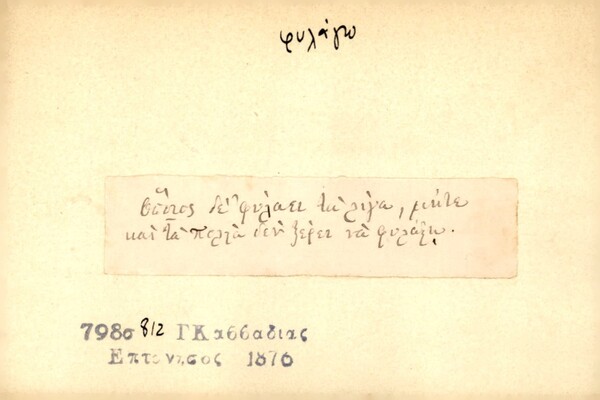 φυλάγω
Ὅποιος δὲ φυλάει τὰ λίγα, μήτε
καὶ τὰ πολλὰ δὲν ξέρει νὰ φυλάξῃ.
798σ 812 ΓΚαββαδιας
Επτανησος 1876